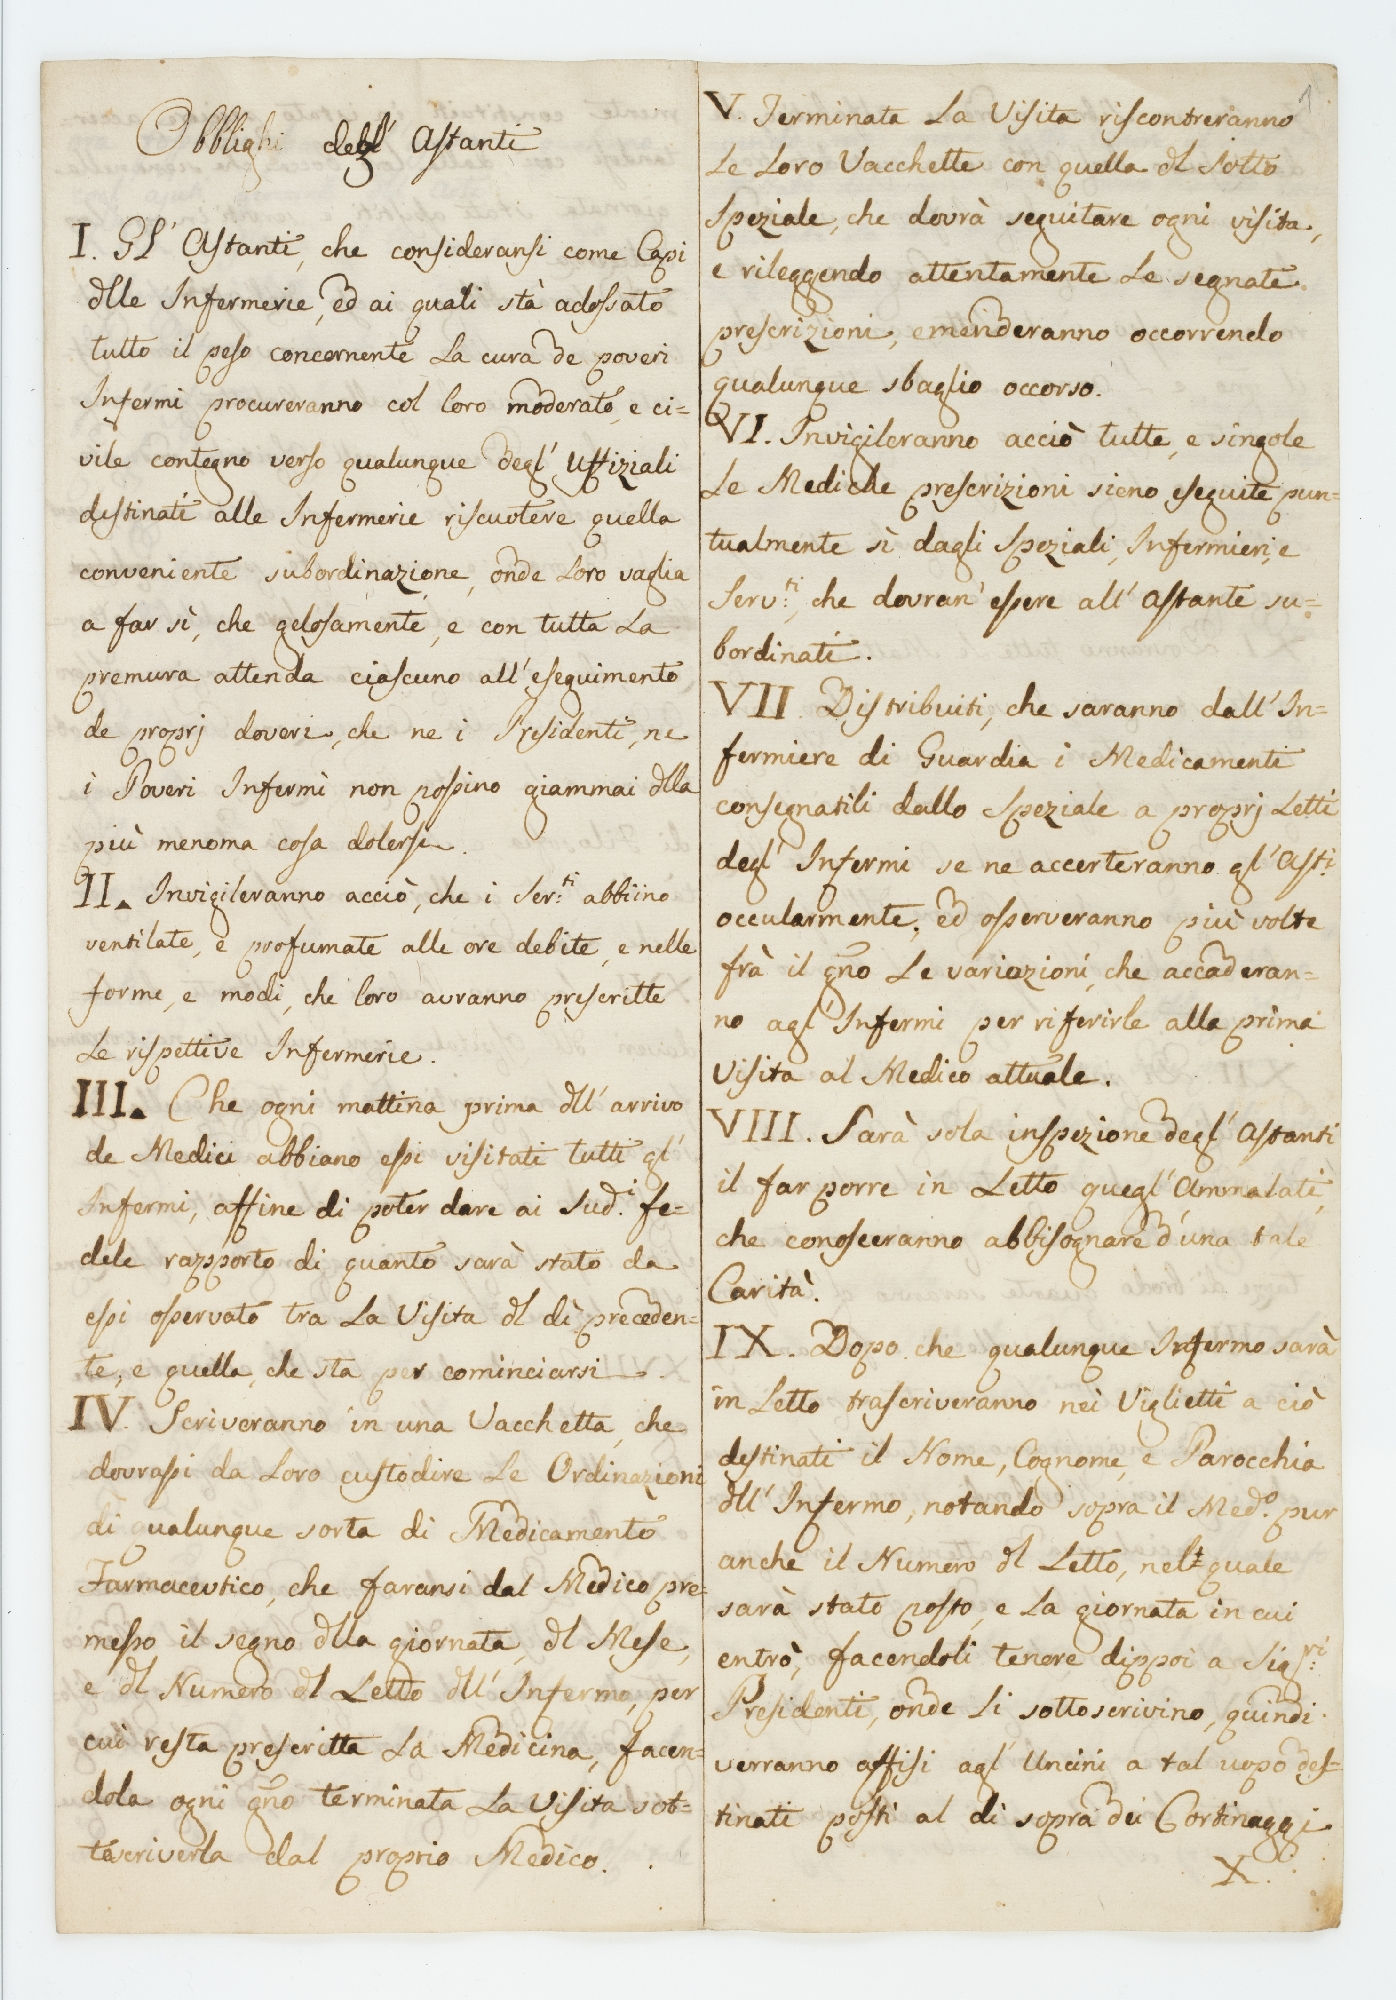 Obblighi degl' Astanti
I. Gl' Astanti, che consideransi come Capi
dlle Infermerie, ed ai quali stà adossato
tutto il peso concernente La cura de poveri
Infermi procureranno col loro moderato, e ci=
vile contegno verso qualunque degl' Uffiziali
destinati alle Infermerie riscuotere quella
conveniente subordinazione, onde Loro vaglia
a far sì, che gelosamente, e con tutta La
premura attenda ciascuno all' eseguimento
de proprj doveri, che ne i Presidenti, ne
i Poveri Infermi non possino giammai dlla
più menoma cosa dolersi.
II. Invigileranno acciò, che i Ser:ti abbiino
ventilate, e profumate alle ore debite, e nelle
forme, e modi, che loro avranno prescritte
Le rispettive Infermerie.
III. Che ogni mattina prima dll' arrivo
de Medici abbiano essi visitati tutti gl'
Infermi, affine di poter dare ai Sud.i fe=
dele rapporto di quanto sarà stato da
essi osservato tra La Visita dl dì preceden=
te, e quella, che sta per cominciarsi.
IV. Scriveranno in una Vacchetta, che
dovrassi da Loro custodire Le Ordinazioni
di qualunque sorta di Medicamento
Farmaceutico, che faransi dal Medico pre=
messo il segno dlla giornata, dl Mese,
e dl Numero dl Letto dll' Infermo, per
cui resta prescritta La Medicina, facen=
dola ogni gno terminata La Visita sot=
toscriverla dal proprio Medico.
1
V. Terminata La Visita riscontreranno
Le Loro Vacchette con quella dl Sotto
Speziale, che dovrà seguitare ogni visita,
e rileggendo attentamente Le segnate
prescrizioni, emenderanno occorrendo
qualunque sbaglio occorso.
VI. Invigileranno acciò tutte, e singole
Le Mediche prescrizioni sieno eseguite pun=
tualmente sì dagli Speziali, Infermieri, e
Serv:ti, che dovran' essere all' Astante su=
bordinati.
VII. Distribuiti, che saranno dall' In=
fermiere di Guardia i Medicamenti
consegnatili dallo Speziale a proprj Letti
degl' Infermi se ne accerteranno gl' Ast:i
occularmente, ed osserveranno più volte
frà il gno Le variazioni, che accaderan=
no agl' Infermi per riferirle alla prima
Visita al Medico attuale.
VIII. Sarà sola inspezione degl' Astanti
il far porre in Letto quegl' Ammalati,
che conosceranno abbisognare d'una tale
Carità.
IX. Dopo che qualunque Infermo sarà
in Letto trascriveranno nei Viglietti a ciò
destinati il Nome, Cognome, e Parocchia
dll' Infermo, notando sopra il Med.o pur
anche il Numero dl Letto, nel quale
sarà stato posto, e La giornata in cui
entrò, facendoli tenere dippoi a Sig:ri
Presidenti, onde li sottoscrivino, quindi
verranno affisi agl' Uncini a tal uopo des=
tinati posti al di sopra dei Cortinaggi.
X.